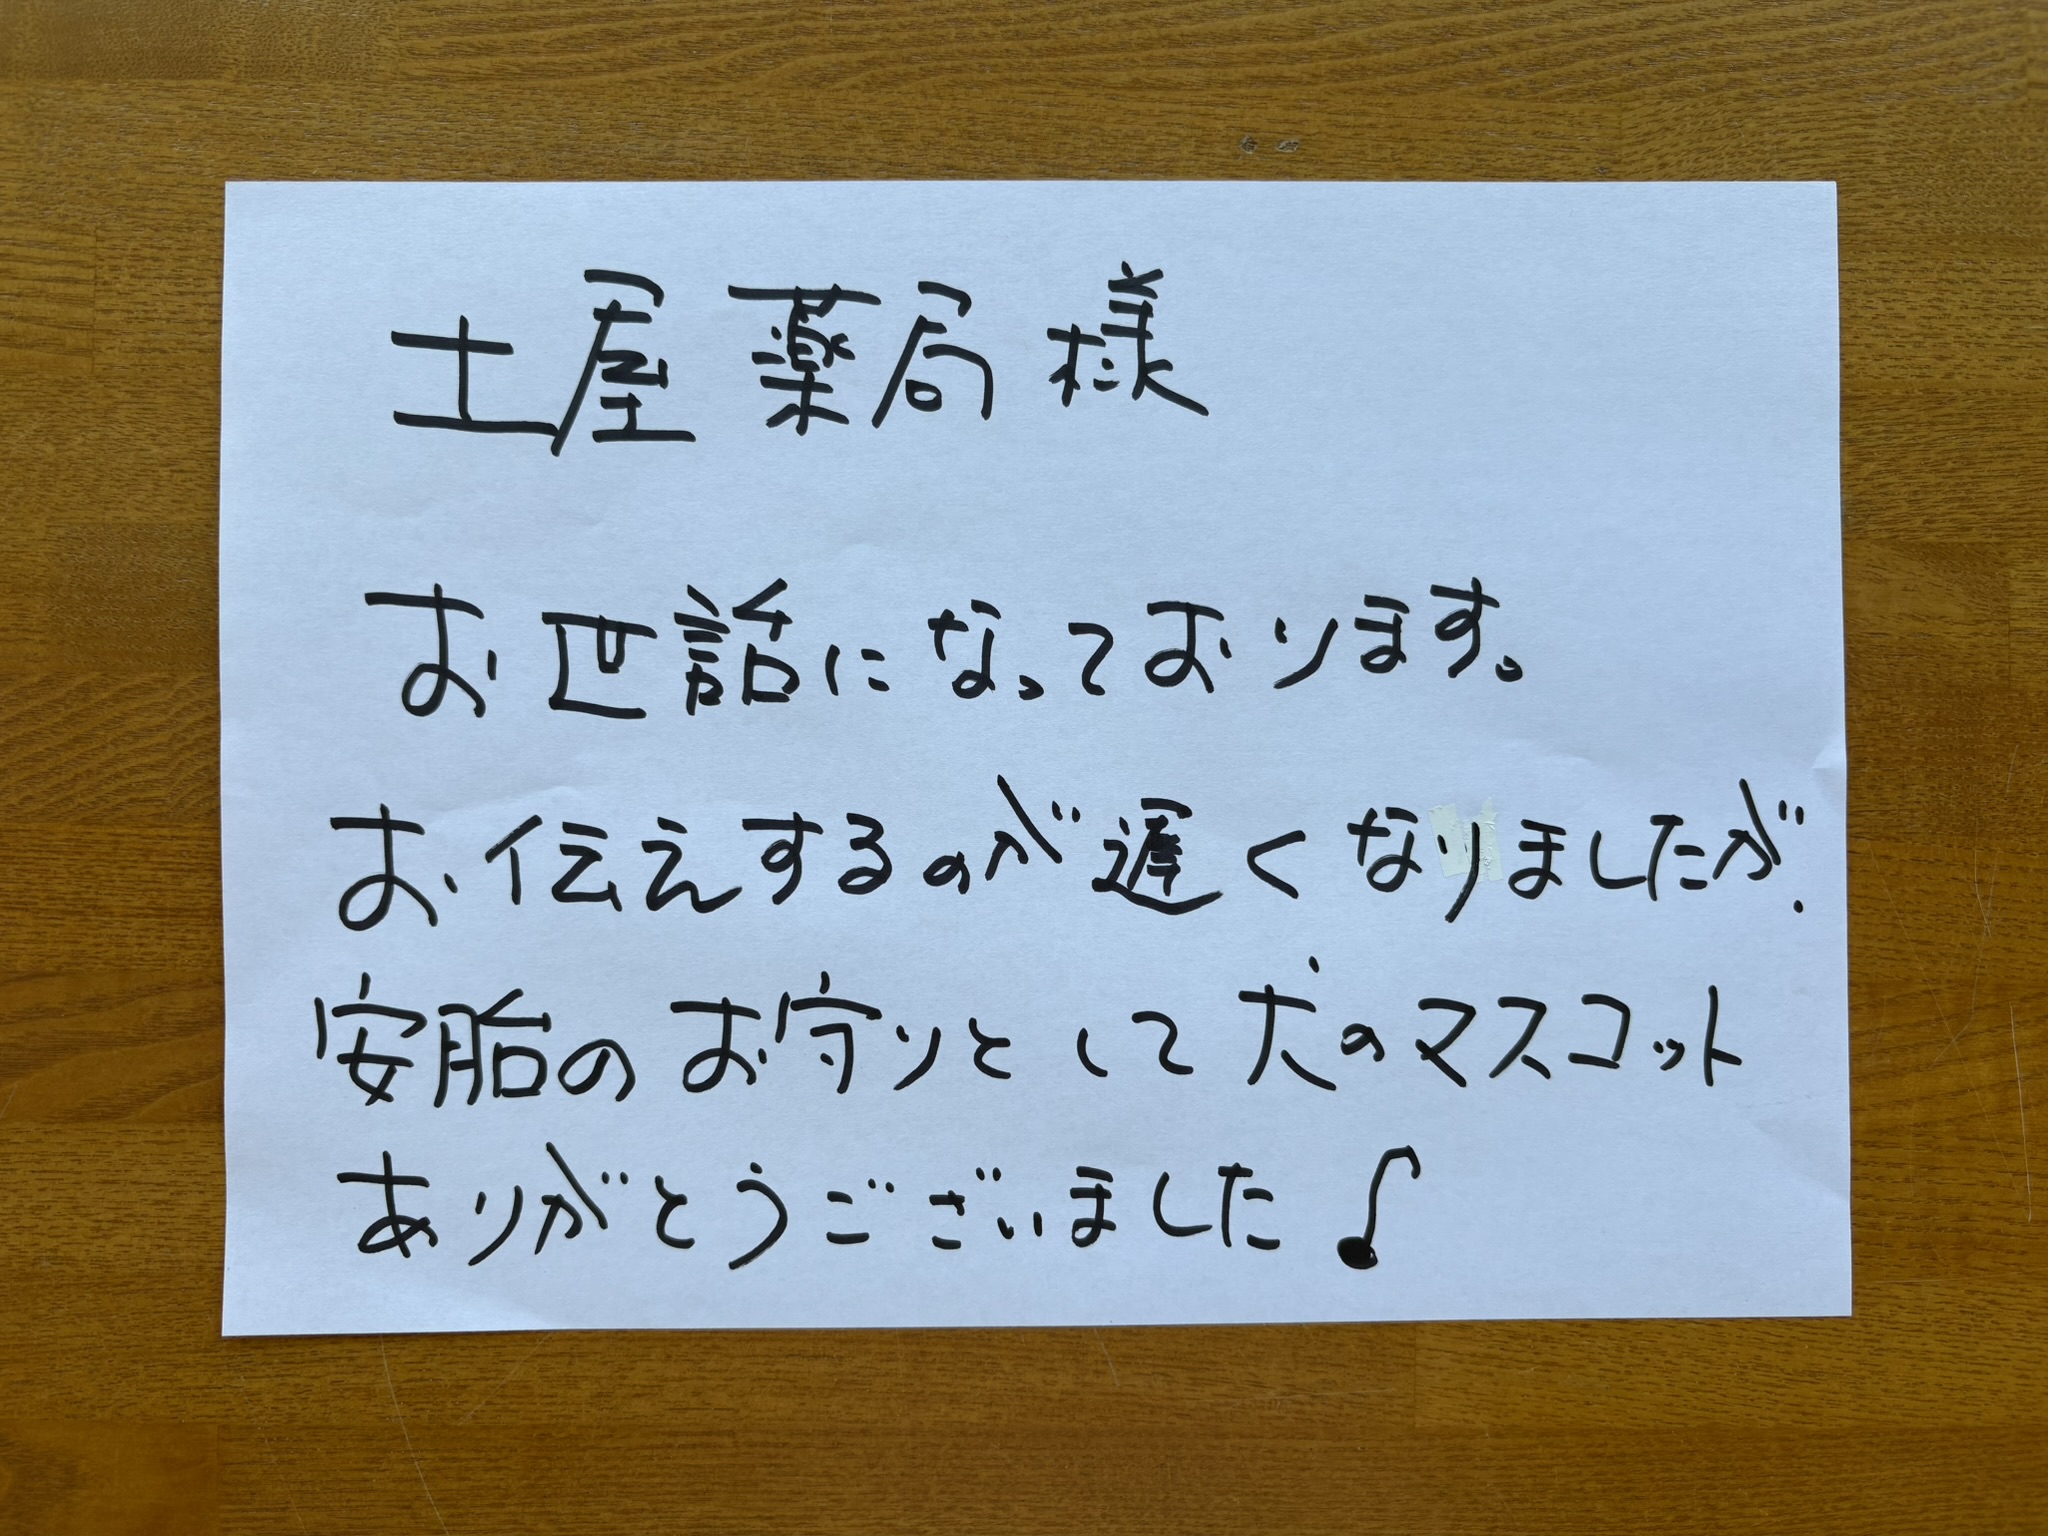 土屋薬局様
お世話になっております。
お伝えするのが遅くなりましたが、
安胎のお守りとして犬のマスコット
ありがとうございました♪